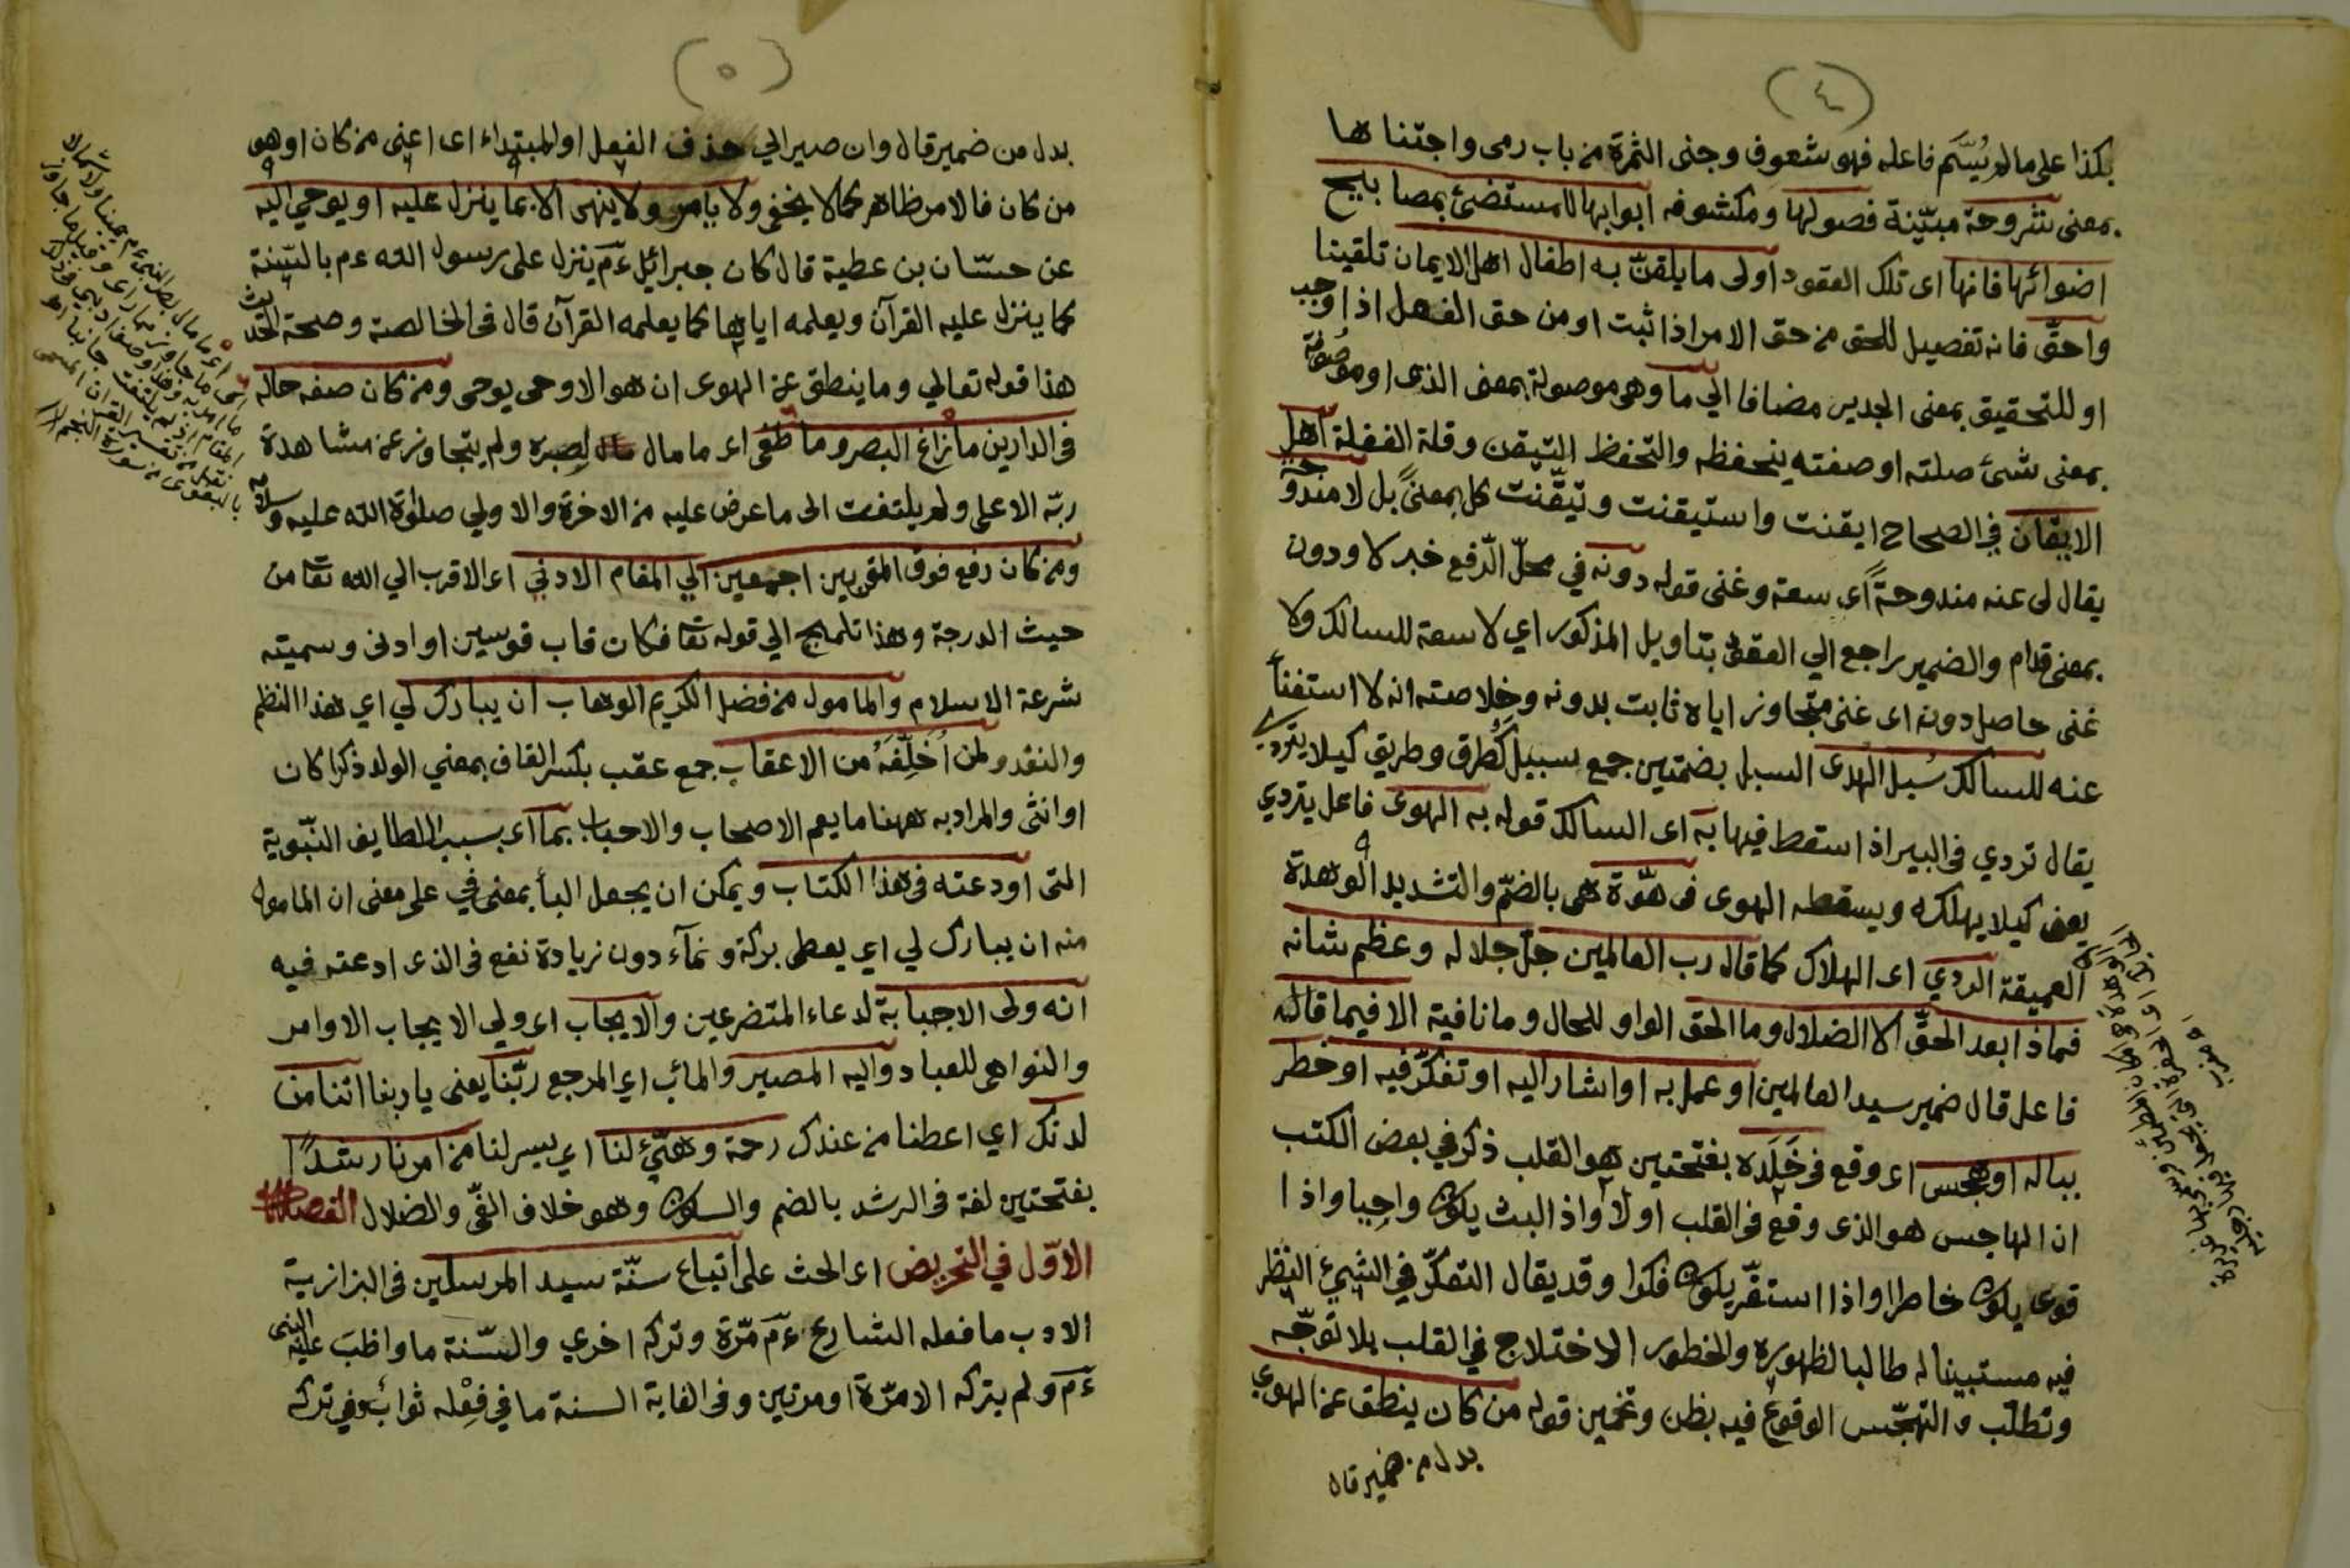 (٤)
بكذا على ما لم يُسَمّ فاعله فهو شعوف وجنى الثمرة من باب رمى واجتناها
بمعنى مشروحة مبيّنة فصولها ومكشوفه ابوابها للمستضئ بمصابيح
اضوائها فانها اى تلك العقود اولى ما يلقن به اطفال اهل الايمان تلقينا
واحقّ فانه تفصيل للحق من حق الامر اذا ثبت او من حق الفعل اذا وجب
او للتحقيق بمعنى الجدير مضافا الي ما وهى موصولة بمعنى الذى او موصوفة
بمعنى شئ صلته او صفته يتحفظه والتحفظ التيقن وقلة الغفلة اهل
الايقان في الصحاح ايقنت واستيقنت وتيقّنت كل بمعنىً بل لا مندوحة
يقال لى عنه مندوحةً اى سعة وغنى قوله دونه في محلّ الرّفع خبر لا ودون
بمعنى قدام والضمير راجع الي العقد بتاويل المذكور اي لا سعة للسالك ولا
غنى حاصل دونه اى غنى متجاوز اياه ثابت بدونه وخلاصته انه لا استغنأ
عنه للسالك سُبل الهدى السبل بضمتين جمع سبيل كُطرق وطريق كيلا يتردي
يقال تردي فى البير اذا سقط فيها به اى السالك قوله به الهوى فاعل يتردي
يعنى كيلا يهلكه ويسقطه الهوى فى هوّة هى بالضمّ والتشديد الوهدة
العميقة الردي اى الهلاك كما قال رب العالمين جلّ جلاله وعظم شانه
فماذا بعد الحقّ الا الضلال وما الحق الواو للحال وما نافية الا فيما قاله
فاعل قال ضمير سيد العالمين او عمل به او اشار اليه او تفكّر فيه او خطر
بباله او هجس اى وقع فى خَلَده بفتحتين هو القلب ذكر في بعض الكتب
ان الهاجس هو الذى وقع فى القلب اولا واذ البث يكون واجبا واذا
قوى يكون خاطرا واذا استقرّ يكون فكرا وقد يقال التفكّر في الشئ النظر
فيه مستبينا له طالبا لظهوره والخطور الاختلاج في القلب بلا توجّه
وتطلّب والتهجّس الوقوع فيه بظن وتخمين قوله من كان ينطق عن الهوي
بدل من ضمير قال
(٥)
بدل من ضمير قال وان صير الي حذف الفعل او المبتداء اى اعنى من كان او هو
من كان فالامر ظاهر كما لا يخفى ولا يامر ولا ينهى الا بما ينزل عليه او يوحي اليه
عن حسّان بن عطية قال كان جبرائيل ءم ينزل على رسول الله ءم بالسّنة
كما ينزل عليه القرآن ويعلمه اياها كما يعلمه القرآن قال فى الخالصة وصحة الحديث
هذا قوله تعالي وما ينطق عن الهوى ان هو الا وحى يوحى ومن كان صفه حاله
فى الدارين ما زاغ البصر وما طغى اى ما مال بصره ولم يتجاوز عن مشاهدة
ربّه الاعلى ولم يلتفت الى ما عرض عليه من الاخرة والاولي صلوة الله عليه وسلامه
ومن كان رفع فوق المقربين اجمعين الي المقام الادنى اى الاقرب الي الله تعا من
حيث الدرجة وهذا تلميح الي قوله تعا فكان قاب قوسين او ادنى وسميته
شرعة الاسلام والمامول من فضل الكريم الوهاب ان يبارك لي اي هذا النظم
والنقد ولمن اُخَلِّفَهُ من الاعقاب جمع عقب بكسر القاف بمعني الولد ذكرا كان
او انثى والمراد به ههنا ما يعم الاصحاب والاحباب بما اى بسبب اللطايف النّبوية
التى اودعته فى هذا الكتاب ويمكن ان يجعل البأ بمعنى في على معنى ان المامول
منه ان يبارك لي اي يعطى بركة ونمآء دون زيادة نفع فى الذى ادعته فيه
انه ولى الاجابة لدعاء المتضرعين والايجاب اى ولي الايجاب الاوامر
والنواهى للعباد واليه المصير والمائب اي المرجع ربّنا يعنى يا ربنا اتنا من
لدنك اي اعطنا من عندك رحمة وهيّئ لنا اي يسر لنا من امرنا رشدًا
بفتحتين لغة فى الرشد بالضم والسكون وهو خلاف الغىّ والضلال الفصل
الاوّل في التحريض اى الحث على اتباع سنّة سيد المرسلين فى البزازية
الادب ما فعله الشارع ءم مّرة وتركه اخري والسّنة ما واظبَ عليه النبى
ءم ولم يتركه الا مرّة او مرتين وفى الغاية السنة ما في فِعْله ثوابٌ وفي تركه